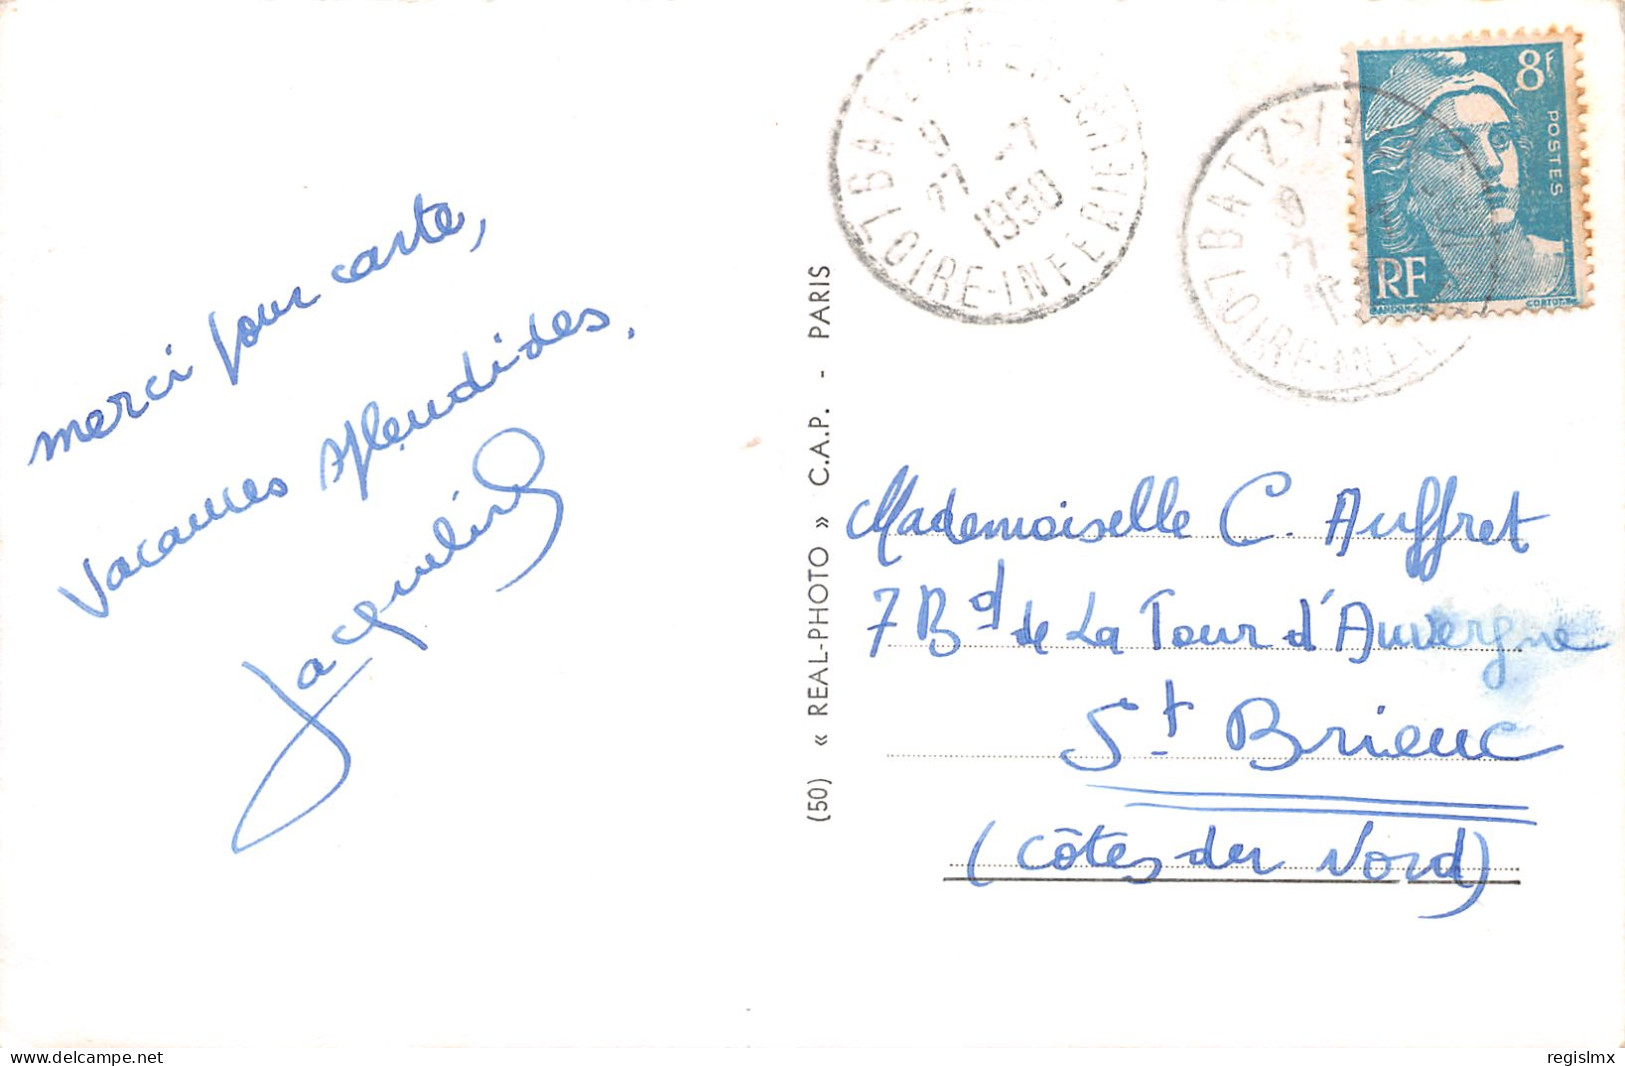 merci pour carte,
Vacances splendides.
Jacqueline
(50) « REAL-PHOTO » C.A.P. - PARIS
BATZ
LOIRE-INFERIEURE
9
27 -7
1950
BATZ S/
LOIRE-INF
8F
POSTES
RF
Mademoiselle C. Auffret
7 Bd de La Tour d'Auvergne
St Brieuc
(Côtes du Nord)
delcampe.net
regislmx